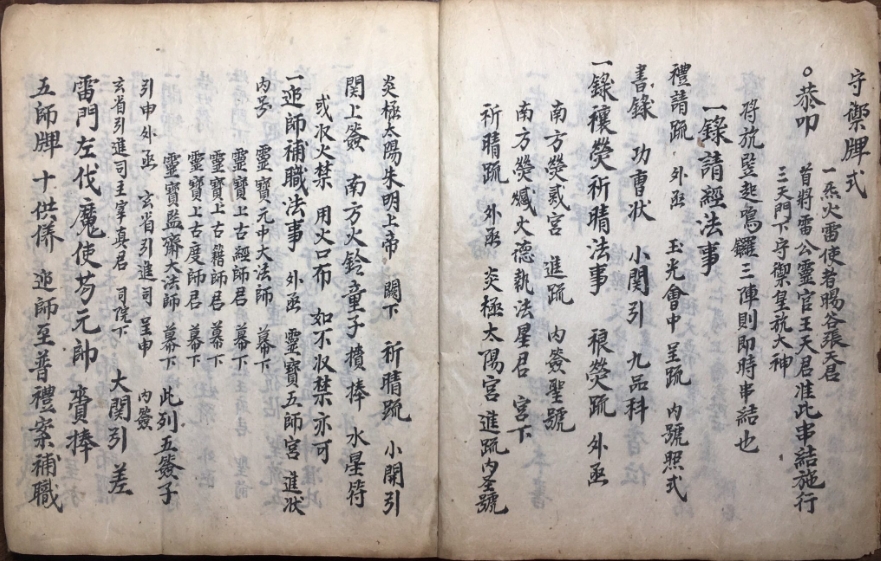 守禦牌式
○恭叩
一炁火雷使者暘谷張天君
首將雷公靈官王天君准此串結施行
三天門下守禦皇旂大神
將旂豎起鳴鑼三陣則即時串結也
一錄請經法事
禮請疏 外函 玉光會中呈疏 內號照式
書錄 功曹狀 小関引 九品科
一錄禳熒祈晴法事 禳熒疏 外函
南方熒惑宮 進疏 內簽聖號
南方熒惑火德執法星君 宮下
祈晴疏 外函 炎極太陽宮進疏內聖號
炎極太陽朱明上帝 闕下 祈晴疏 小関引
関上簽 南方火鈴童子 摃捧 水星符
或收火禁 用火口布 如不收禁亦可
一迎師補職法事 外函 靈寶五師宮 進狀
內簽 靈寶元中大法師 幕下
靈寶上古經師君 幕下
靈寶上古籍師君 幕下
靈寶上古度師君 幕下
靈寶監齋大法師 幕下 此列五簽子
引申外函 玄省引進司 呈申 內簽
玄省引進司主宰真君 司院下 大関引 差
雷門左伐魔使苟元帥 賫捧
五師牌 十供侪 迎師至普禮案補職